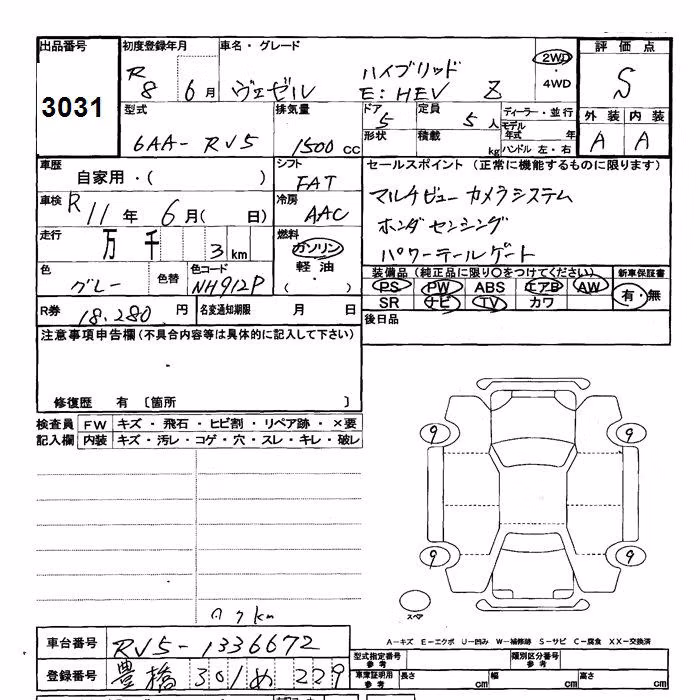 出品番号 初度登録年月 車名・グレード 評価点
3031 R8 6月 ヴェゼル ハイブリッド E:HEV Z 2WD・4WD S
型式 排気量 ドア 定員 ディーラー・並行 外装 内装
6AA-RV5 1500cc 5 5人 モデル年式 年 A A
形状 積載 kg ハンドル 左・右
車歴 シフト セールスポイント(正常に機能するものに限ります)
自家用・( ) FAT マルチビューカメラシステム
車検 R11年 6月( 日) 冷房 AAC ホンダセンシング
走行 万 千 3km 燃料 ガソリン パワーテールゲート
軽油
・
( )
色 グレー 色替 色コード NH912P
装備品(純正品に限り〇をつけてください) 新車保証書
PS PW ABS エアB AW 有・無
SR ナビ TV カワ
R券 18,280円 名変通知期限 月 日 後日品
注意事項申告欄(不具合内容等は具体的に記入して下さい)
修復歴 有 〔箇所 〕
検査員 FW キズ・飛石・ヒビ割・リペア跡・×要
記入欄 内装 キズ・汚レ・コゲ・穴・スレ・キレ・破レ
9 9
9 9
スペア
km
A-キズ E-エクボ U-凹み W-補修跡 S-サビ C-腐食 XX-交換済
車台番号 RV5-1336672
型式指定番号 参考 類別区分番号 参考
登録番号 豊橋 301 め 229
車庫証明用 参考 長さ cm 幅 cm 高さ cm